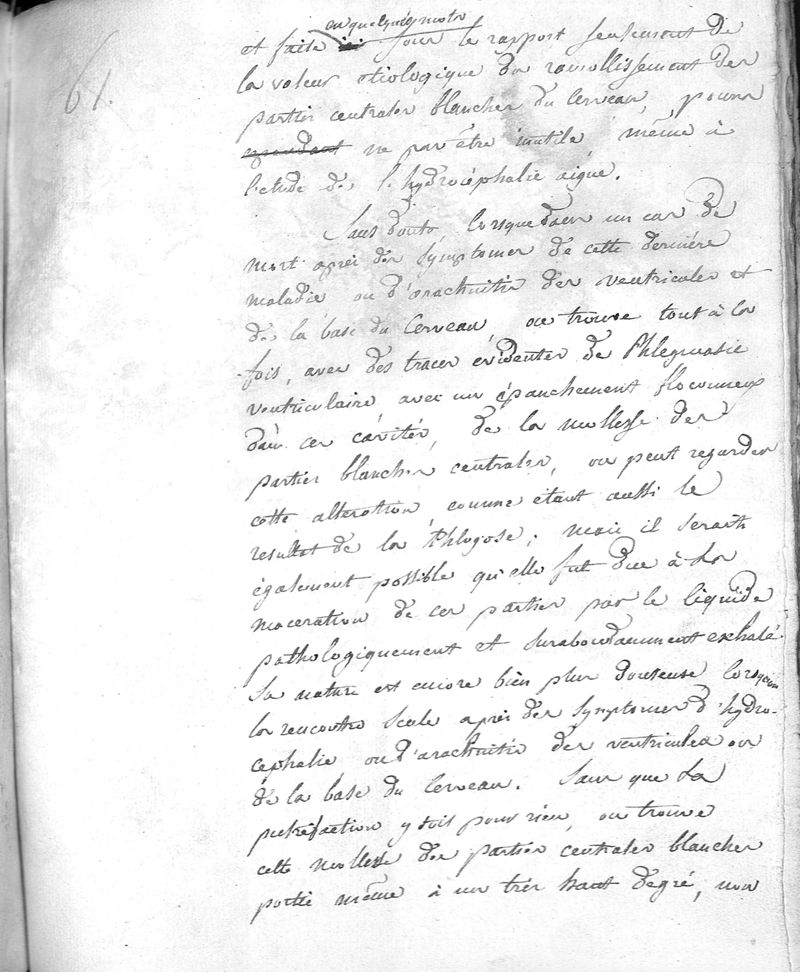 61.
en quelques mots
et faite sous le rapport seulement de
la valeur etiologique du ramollissement des
parties centrales blanches du Cerveau, pourra
ne pas être inutile, même à
l'etude de l'hydrocéphalie aigue.
Sans doute, lorsque dans un cas de
mort après des symptomes de cette dernière
maladie ou d'arachnitis des ventricules et
de la base du Cerveau, on trouve tout à la
fois, avec des traces évidentes de Phlegmasie
ventriculaire avec un épanchement floconneux
dans ces cavités, de la mollesse des
parties blanches centrales, on peut regarder
cette alteration, comme etant aussi le
resultat de la Phlogose; mais il serait
également possible qu'elle fut due à la
maceration de ces parties par le liquide
pathologiquement et surabondamment exhalé.
Sa nature est encore bien plus douteuse lorsqu'on
la rencontre seule après des symptomes d'hydro-
cephalie ou d'arachnitis des ventricules ou
de la base du Cerveau. Sans que la
putréfaction y soit pour rien, on trouve
cette mollesse des parties centrales blanches
portée même à un très haut degré, non